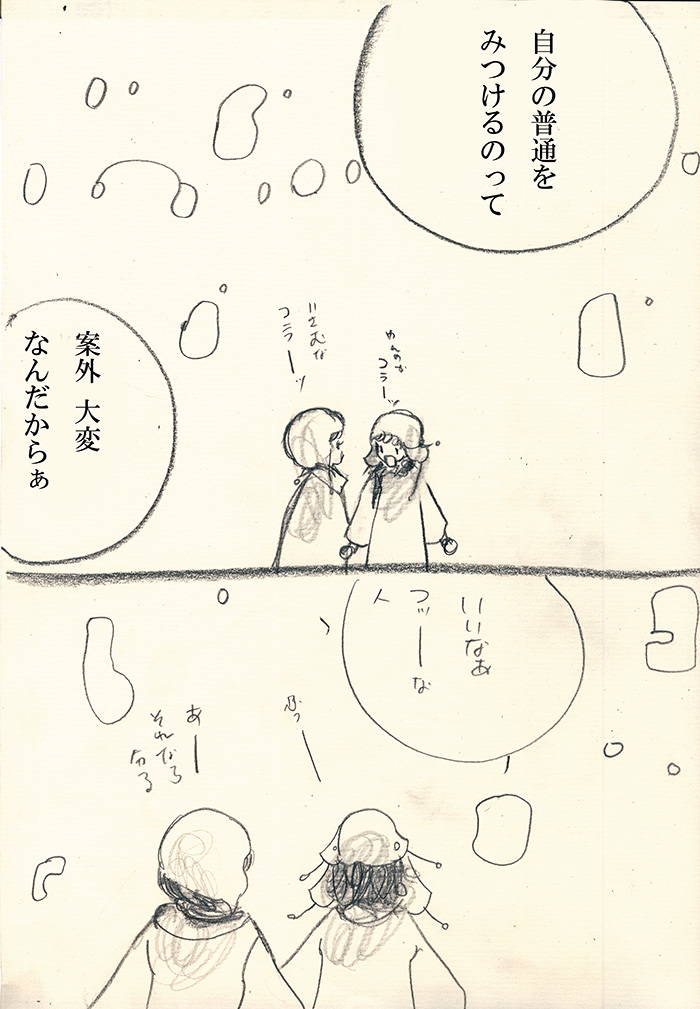 自分の普通を
みつけるのって
やんのか
コラーッ
コラーッ
案外 大変
なんだからぁ
いいなぁ
フツーな
人
ふつー
あー
それなら
分る